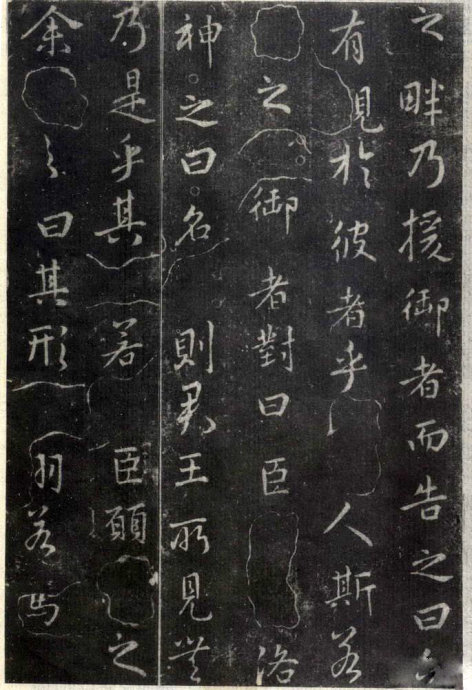 之畔乃援御者而告之曰
有見於彼者乎人斯若
之御者對曰臣洛
神之曰名則君王所見無
乃是乎其若臣願之
余之曰其形羽若馬